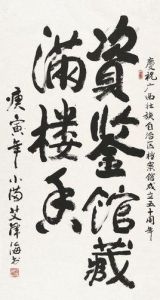 慶祝广西壮族自治区档案馆成立五十周年
資鉴館藏
满楼香
庚寅年小满艾译海书